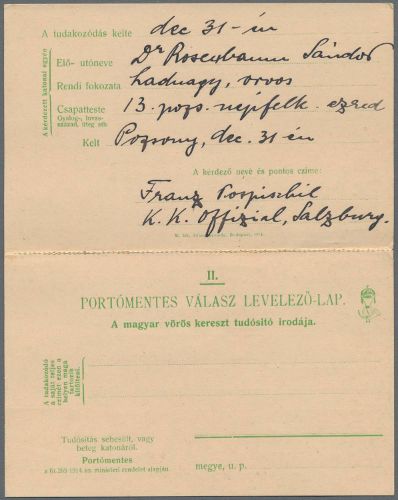 A tudakozódás kelte dec 31-én
A kérdezett katonai egyén
Elő- utóneve Dr Rosenbaum Sándor
Rendi fokozata hadnagy, orvos
Csapatteste 13. pozs. népfelk. ezred
Gyalog-, lovas-
század, üteg stb.
Kelt Pozsony, dec. 31 én
A kérdező neve és pontos czime:
Franz Pospischil
K. K. Offizial, Salzburg.
II.
PORTÓMENTES VÁLASZ LEVELEZŐ-LAP.
A magyar vörös kereszt tudósító irodája.
A tudakozódó
a saját teljes
czímét ezen a
helyen maga
tartozik
kitölteni.
Tudósítás sebesült, vagy
beteg katonáról.
Portómentes
a 61.265 1914 sz. ministeri rendelet alapján.
megye, u. p.